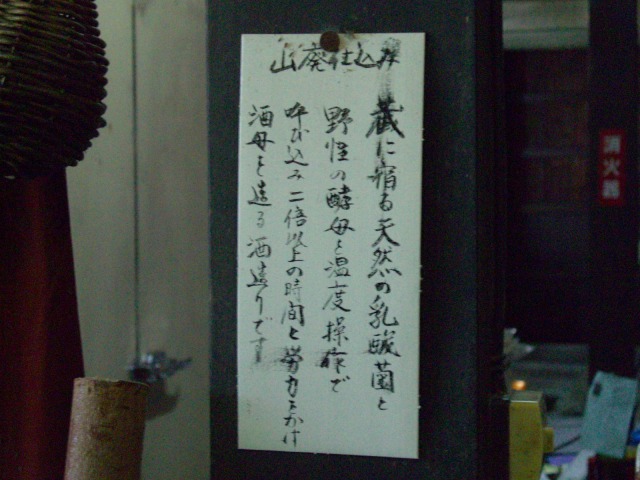 山廃仕込み
蔵に宿る天然の乳酸菌と
野性の酵母を温度操作で
呼び込み二倍以上の時間と労力をかけ
酒母を造る酒造りです
消火器